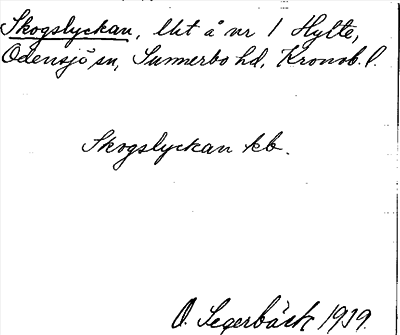 Skogslyckan, lht å nr 1 Hylte,
Odensjö sn, Sunnerbo hd, Kronob. l.
Skogslyckan kb.
O. Segerbäck 1919.